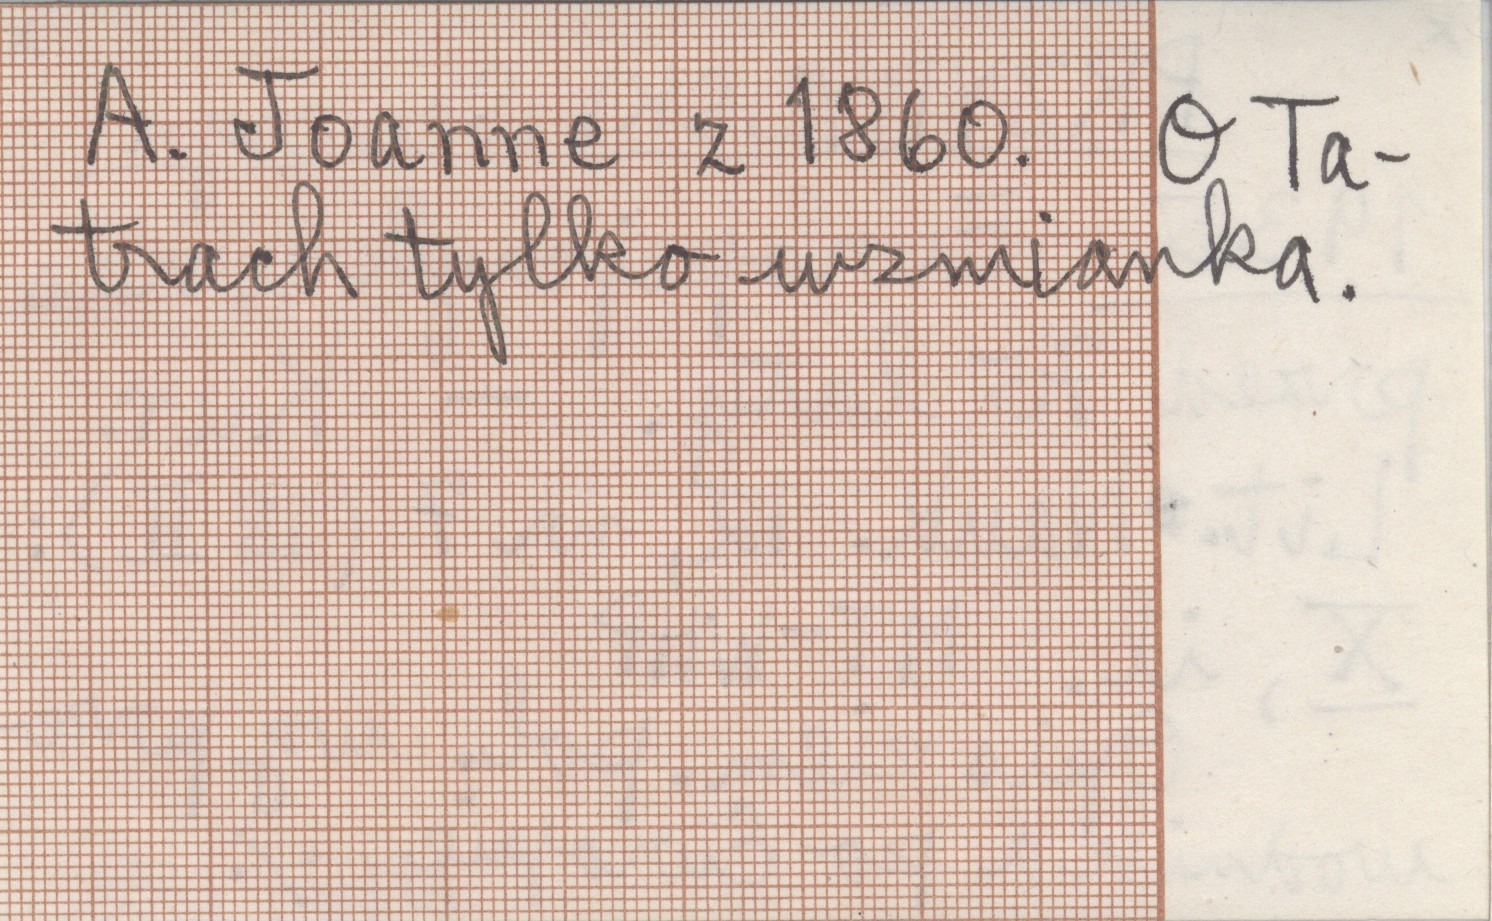 A. Joanne z 1860. O Ta-
trach tylko wzmianka.